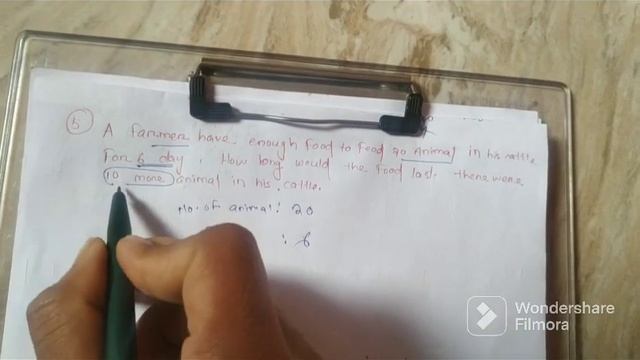 5 A farmer have enough food to feed 20 animal in his cattle
For 6 day. How long would the food last there were
10 more animal in his cattle.
No. of animal: 20
: 6
Wondershare
Filmora